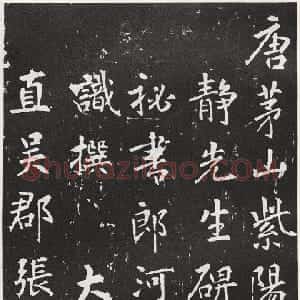 唐茅山紫陽
静先生碑
祕書郎河
識撰 大
直吴郡張
shufaziliao.com